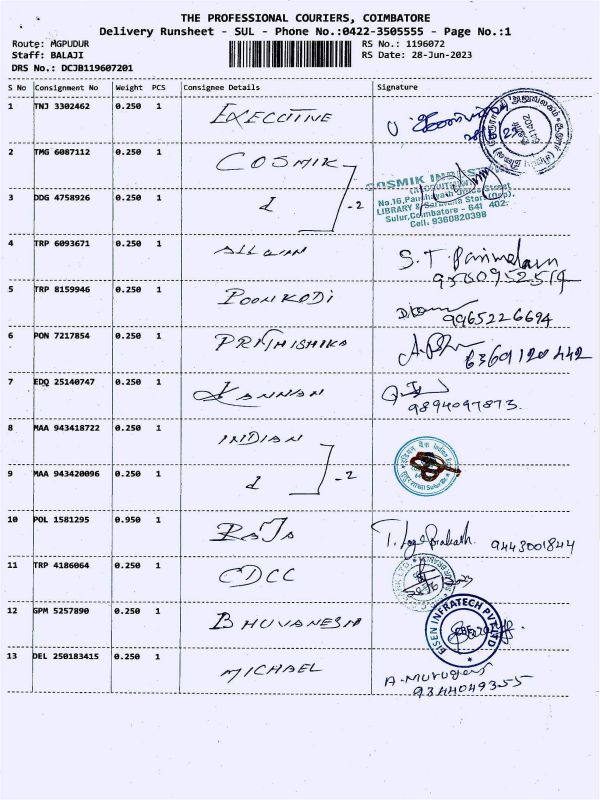 THE PROFESSIONAL COURIERS, COIMBATORE
Delivery Runsheet - SUL - Phone No.:0422-3505555 - Page No.:1
Route: MGPUDUR RS No.: 1196072
Staff: BALAJI RS Date: 28-Jun-2023
DRS No.: DCJB119607201
S No Consignment No Weight PCS Consignee Details Signature
1 TNJ 3302462 0.250 1 EXECUTIVE
2 TMG 6087112 0.250 1 COSMIK
COSMIK
3 DDG 4758926 0.250 1 d -2
LIBRARY &
Sulur,Coimbatore - 641 402.
Cell: 9360820398
4 TRP 6093671 0.250 1 S.T.
5 TRP 8159946 0.250 1 POONKODI
9965226694
6 PON 7217854 0.250 1 PRITHISHIKA 6369120442
7 EDQ 25140747 0.250 1 KANNAN
9894097873.
8 MAA 943418722 0.250 1 INDIAN
9 MAA 943420096 0.250 1 d -2
10 POL 1581295 0.950 1 RAJA T. 9443001844
11 TRP 4186064 0.250 1 CDCC
12 GPM 5257890 0.250 1 BHUVANESH
EISEN INFRATECH PVT LTD
13 DEL 250183415 0.250 1 MICHAEL A-Murugan
9344049355